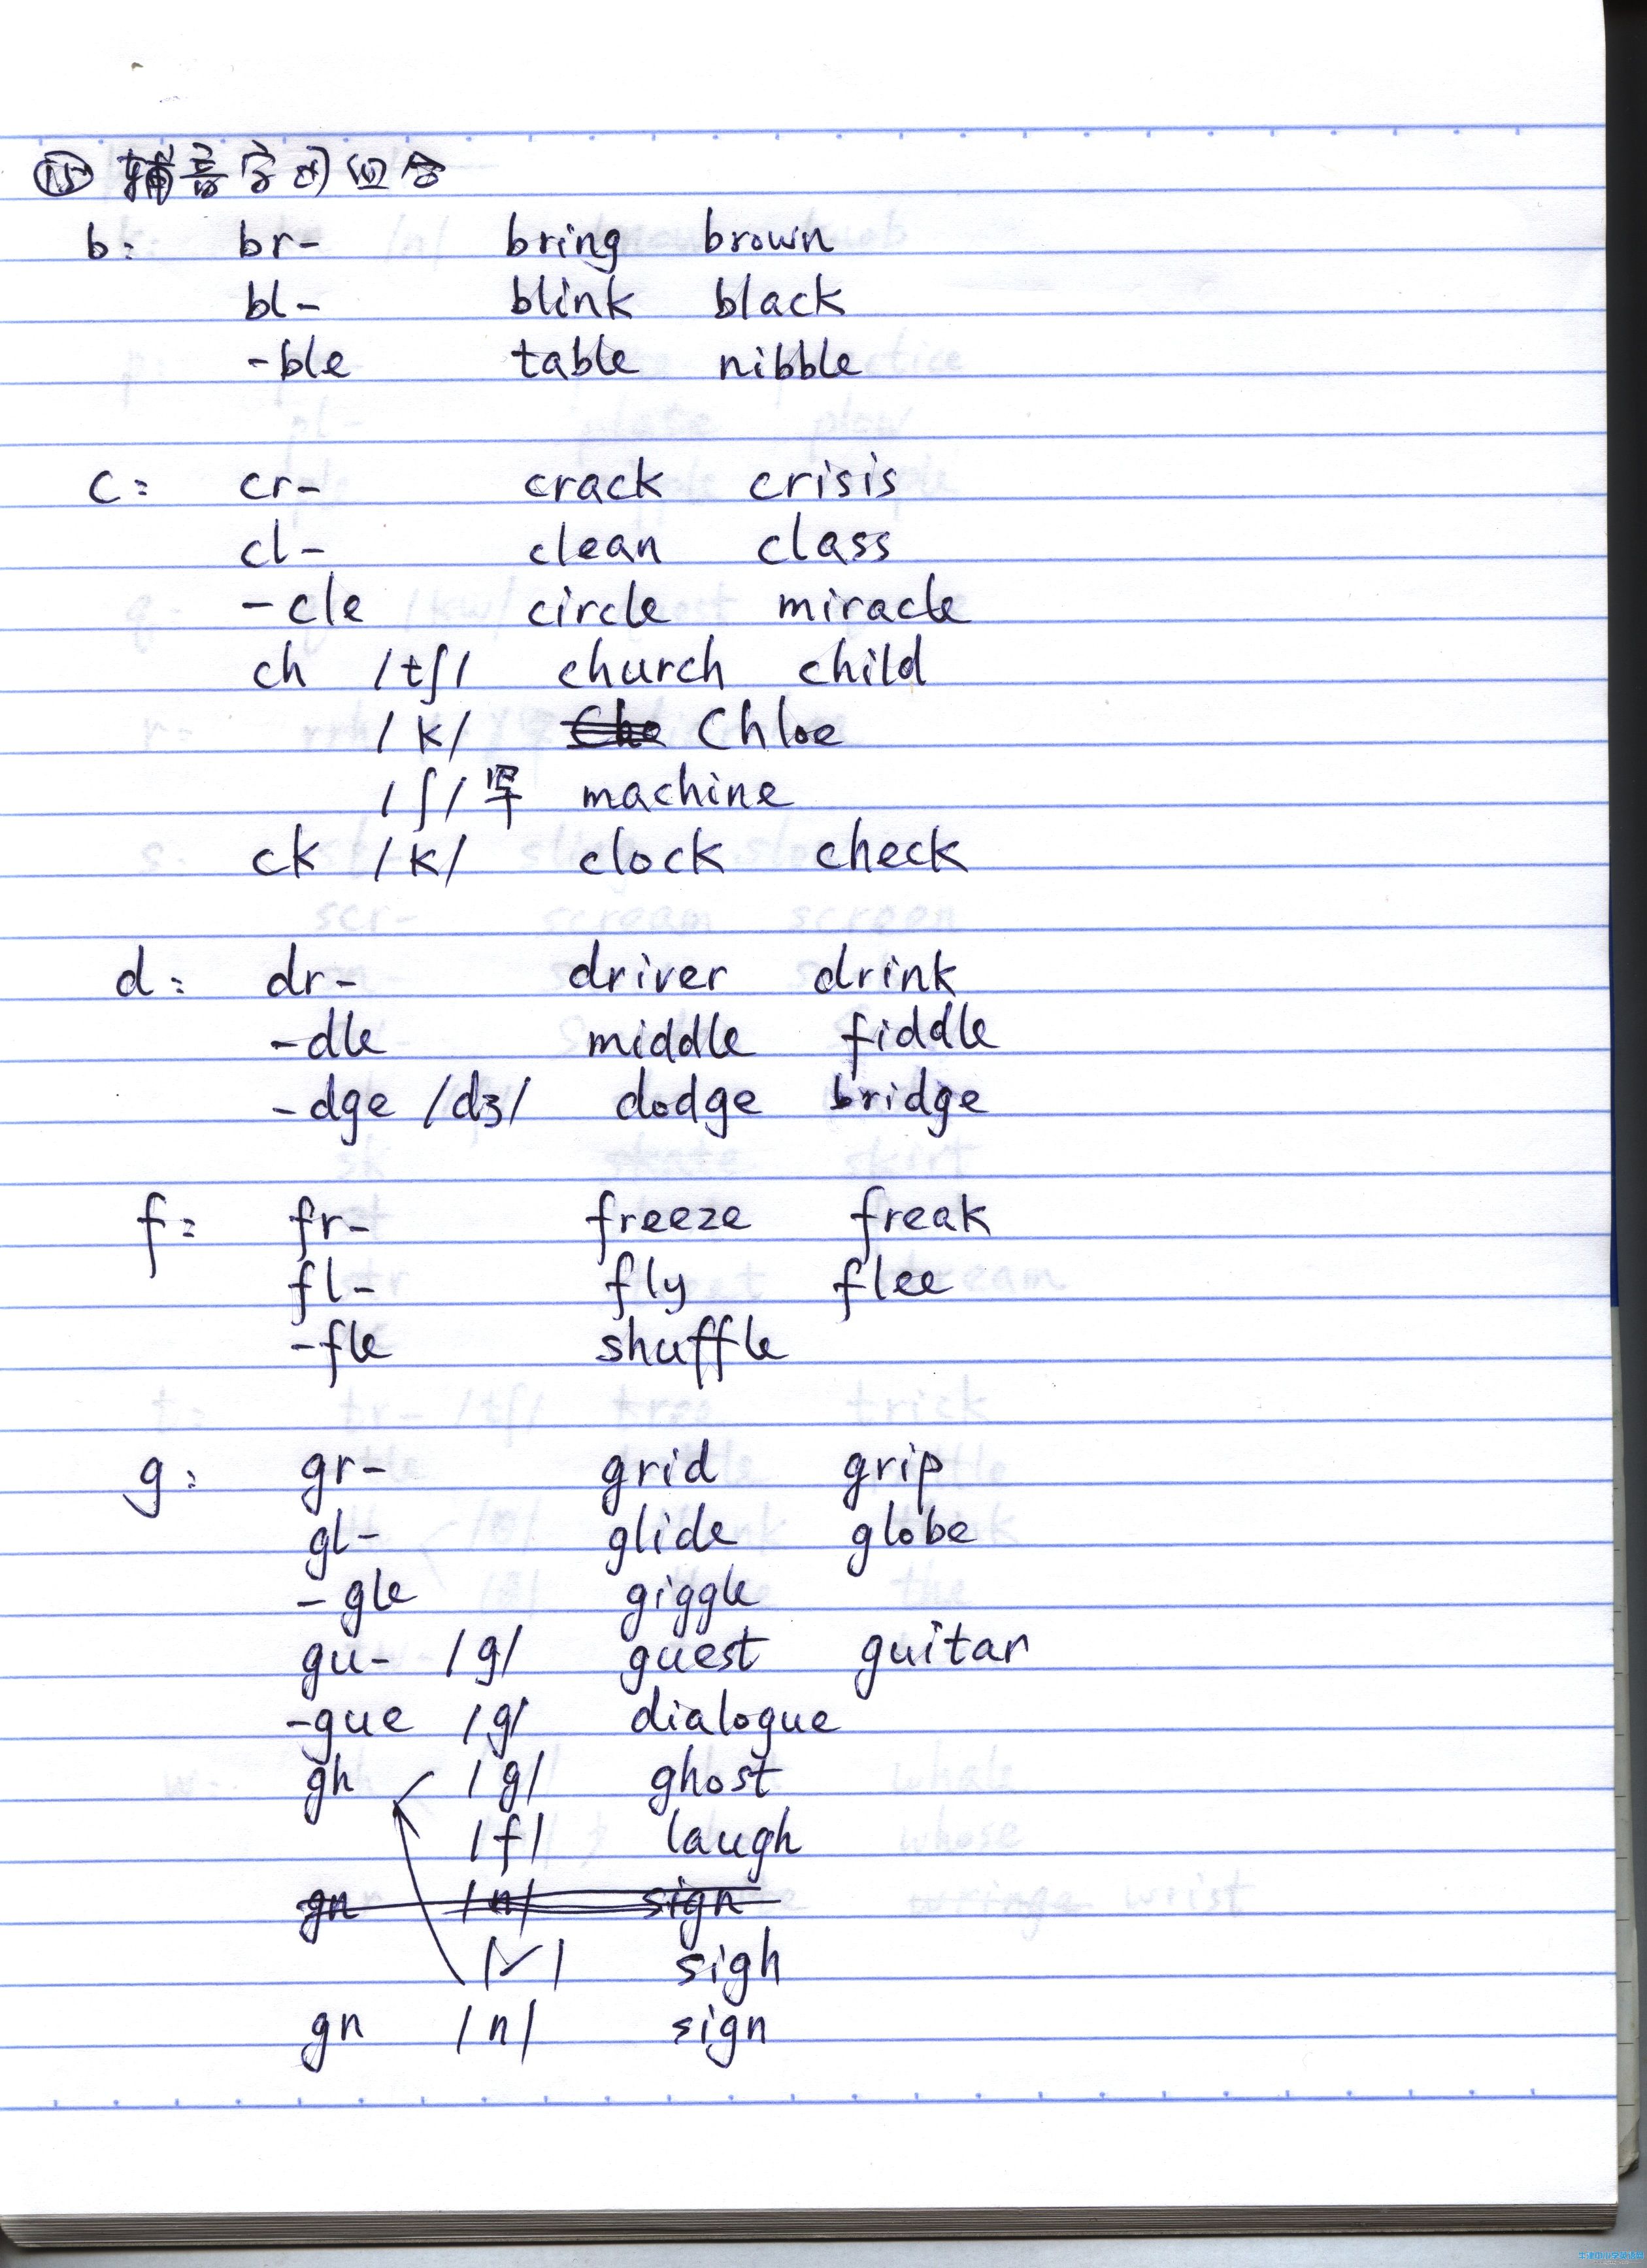 ⑮ 辅音字母组合
b: br- bring brown
bl- blink black
-ble table nibble
c: cr- crack crisis
cl- clean class
-cle circle miracle
ch /tʃ/ church child
/k/ Che Chloe
/ʃ/ 罕 machine
ck /k/ clock check
d: dr- driver drink
-dle middle fiddle
-dge /dʒ/ dodge bridge
f: fr- freeze freak
fl- fly flee
-fle shuffle
g: gr- grid grip
gl- glide globe
-gle giggle
gu- /g/ guest guitar
-gue /g/ dialogue
gh /g/ ghost
/f/ laugh
gn /n/ sign
/~/ sigh
gn /n/ sign